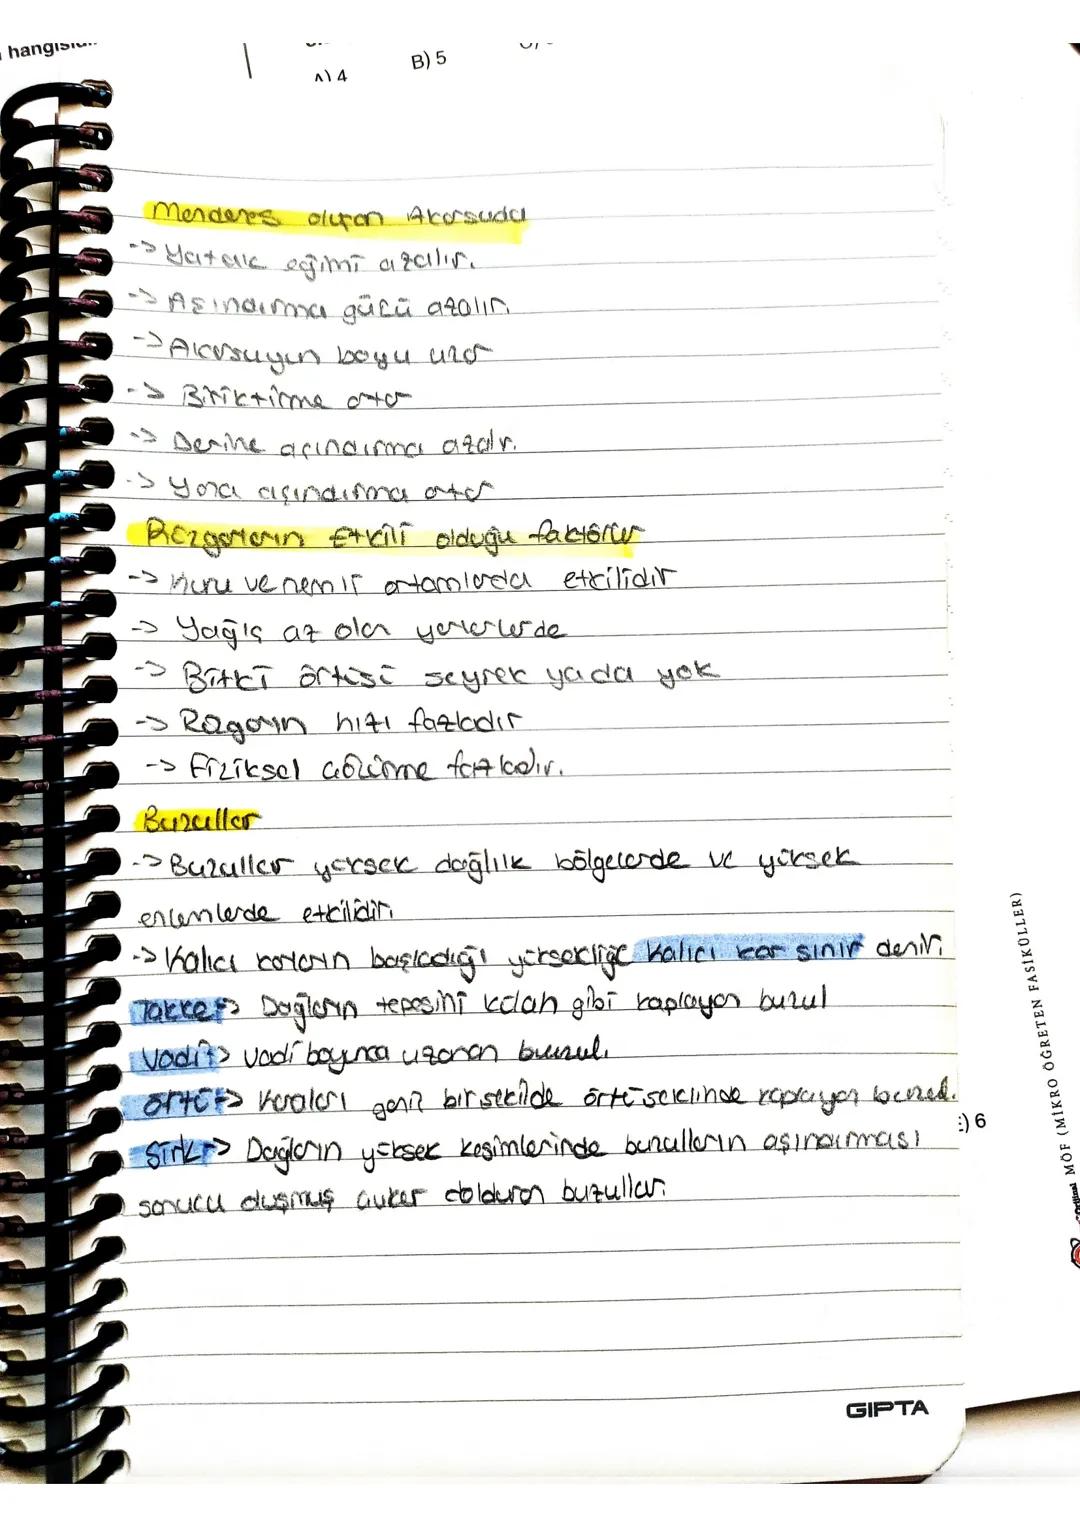 hangisi
A) 4
B) 5
Menderes oluşan Akarsuda
-> Yatak eğimi azalır.
-> Aşındırma gücü azalır.
-> Akarsuyun boyu uzar
-> Biriktirme artar
-> Derine aşındırma azalır.
-> Yana aşındırma artar
Rüzgarların Etkili olduğu faktörler
-> Kuru ve nemli ortamlarda etkilidir
-> Yağış az olan yerlerde
-> Bitki örtüsü seyrek yada yok
-> Rüzgarın hızı fazladır
-> Fiziksel çözünme fazladır.
Buzullar
-> Buzullar yüksek dağlık bölgelerde ve yüksek
enlemlerde etkilidir.
-> Kalıcı karların başladığı yüksekliğe kalıcı kar sınır denir.
Takke -> Dağların tepesini külah gibi kaplayan buzul
Vadi -> vadi boyunca uzanan buzul.
Örtü -> Karaları geniş bir şekilde örtü şeklinde kaplayan buzul.
Sirk -> Dağların yüksek kesimlerinde buzulların aşındırması
sonucu oluşmuş çukur dolduran buzullar.
E) 6
MÖF (MİKRO ÖĞRETEN FASİKÜLLER)
GIPTA